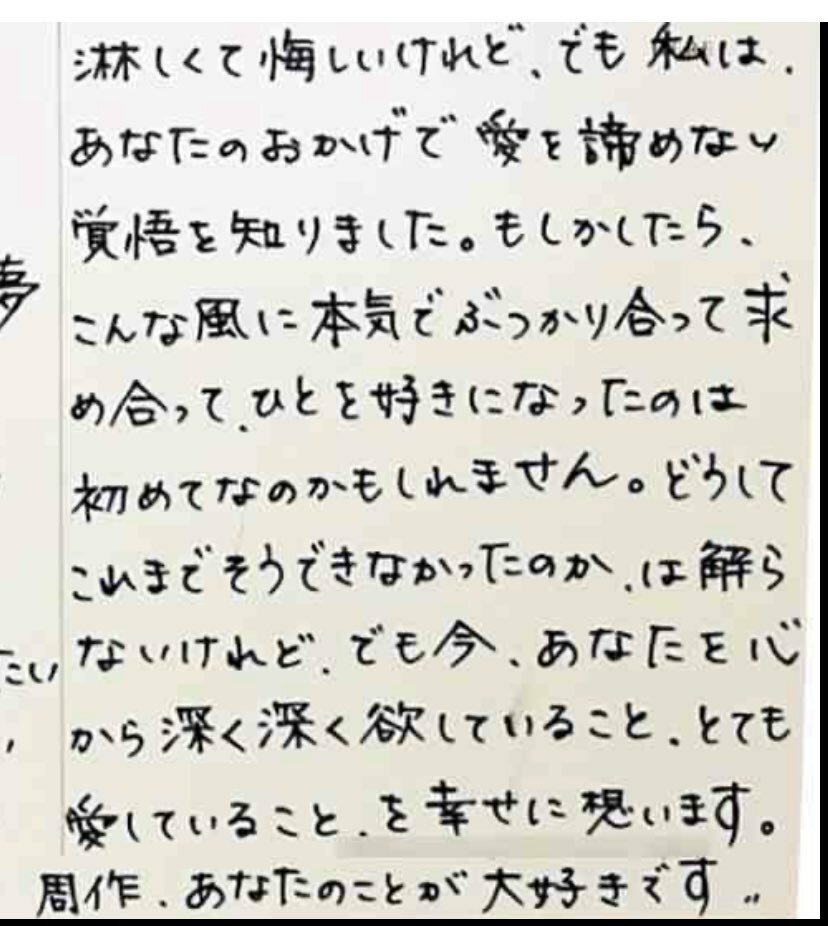 淋しくて悔しいけれど、でも私は、
あなたのおかげで愛を諦めない
覚悟を知りました。もしかしたら、
こんな風に本気でぶつかり合って求
め合って、ひとを好きになったのは
初めてなのかもしれません。どうして
これまでそうできなかったのか、は解ら
ないけれど、でも今、あなたを心
から深く深く欲していること、とても
愛していること、を幸せに想います。
周作、あなたのことが大好きです。
夢
たい